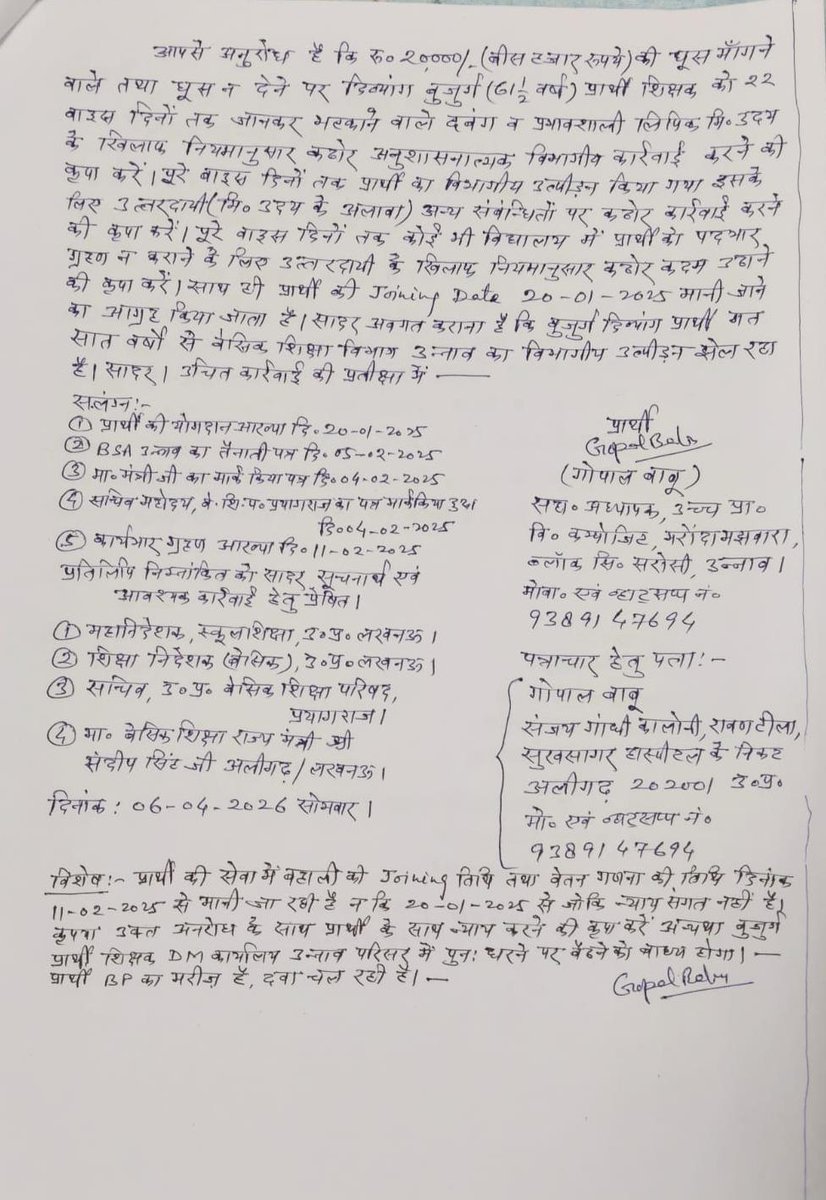 आपसे अनुरोध है कि रु० 20,000/- (बीस हजार रूपये) की घूस माँगने
वाले तथा घूस न देने पर दिव्यांग बुजुर्ग (61½ वर्ष) प्रार्थी शिक्षक को 22
बाइस दिनों तक जानकर भटकाने वाले दबंग व प्रभावशाली लिपिक मि० उदय
के खिलाफ नियमानुसार कठोर अनुशासनात्मक विभागीय कार्रवाई करने की
कृपा करें। पूरे बाइस दिनों तक प्रार्थी का विभागीय उत्पीड़न किया गया इसके
लिए उत्तरदायी (मि० उदय के अलावा) अन्य संबंन्धितों पर कठोर कार्रवाई करने
की कृपा करें। पूरे बाइस दिनों तक कोई भी विद्यालय में प्रार्थी को पदभार
ग्रहण न कराने के लिए उत्तरदायी के खिलाफ नियमानुसार कठोर कदम उठाने
की कृपा करें। साथ ही प्रार्थी की Joining Date 20-01-2025 मानी जाने
का आग्रह किया जाता है। सादर अवगत कराना है कि बुजुर्ग दिव्यांग प्रार्थी गत
सात वर्षों से बेसिक शिक्षा विभाग उन्नाव का विभागीय उत्पीड़न झेल रहा
है। सादर। उचित कार्रवाई की प्रतीक्षा में —
संलग्न:-
① प्रार्थी की योगदान आख्या दि. 20-01-2025
② BSA उन्नाव का तैनाती पत्र दि. 05-02-2025
③ मा० मंत्री जी का मार्क किया पत्र दि. 04-02-2025
④ सचिव महोदय, बे. शि. प. प्रयागराज का पत्र मार्क किया हुआ
दि. 04-02-2025
⑤ कार्यभार ग्रहण आख्या दि. 11-02-2025
प्रतिलिपि निम्नांकित को सादर सूचनार्थ एवं
आवश्यक कार्रवाई हेतु प्रेषित।
① महानिदेशक, स्कूल शिक्षा, उ०प्र० लखनऊ।
② शिक्षा निदेशक (बेसिक), उ०प्र० लखनऊ।
③ सचिव, उ०प्र० बेसिक शिक्षा परिषद,
प्रयागराज।
④ मा० बेसिक शिक्षा राज्य मंत्री श्री
संदीप सिंह जी अलीगढ़/लखनऊ।
दिनांक: 06-04-2026 सोमवार।
प्रार्थी
Gopal Babu
(गोपाल बाबू)
सहा० अध्यापक, उच्च प्रा०
वि० कम्पोजिट,
ब्लॉक सि० सरोसी, उन्नाव।
मोबा० एवं व्हाट्सप्प नं०
9389147694
पत्राचार हेतु पता:-
गोपाल बाबू
संजय गांधी कालोनी, रावणटीला,
सुखसागर हास्पीटल के निकट
अलीगढ़ 202001 उ०प्र०
मो० एवं व्हाट्सप्प नं०
9389147694
विशेष:- प्रार्थी की सेवा में बहाली की Joining तिथि तथा वेतन गणना की तिथि दिनांक
11-02-2025 से मानी जा रही है न कि 20-01-2025 से जोकि न्याय संगत नहीं है।
कृपया उक्त अनरोध के साथ प्रार्थी के साथ न्याय करने की कृपा करें अन्यथा बुजुर्ग
प्रार्थी शिक्षक DM कार्यालय उन्नाव परिसर में पुन: धरने पर बैठने को बाध्य होगा। —
प्रार्थी BP का मरीज है, दवा चल रही है। —
Gopal Babu